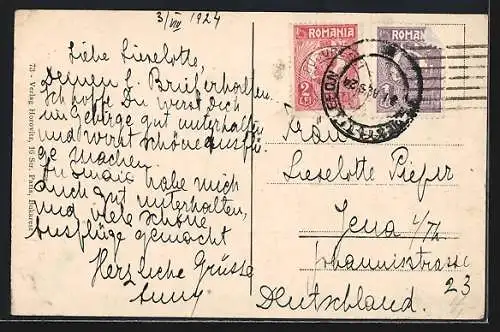 3/VIII 1924
Liebe Lieselotte,
Deinen l. Brief erhalten.
Ich hoffe Du wirst dich
im Gebirge gut unterhalten
und wirst schöne Ausflü-
ge machen.
In Sinaia habe mich
auch gut unterhalten,
und viele schöne
Ausflüge gemacht
Herzliche Grüsse
72 - Verlag Horovitz, 16 Str. Bukarest
ROMANIA
2
ROMANIA
Lieselotte
Jena i/Th
Johannisstrasse
23
Deutschland.